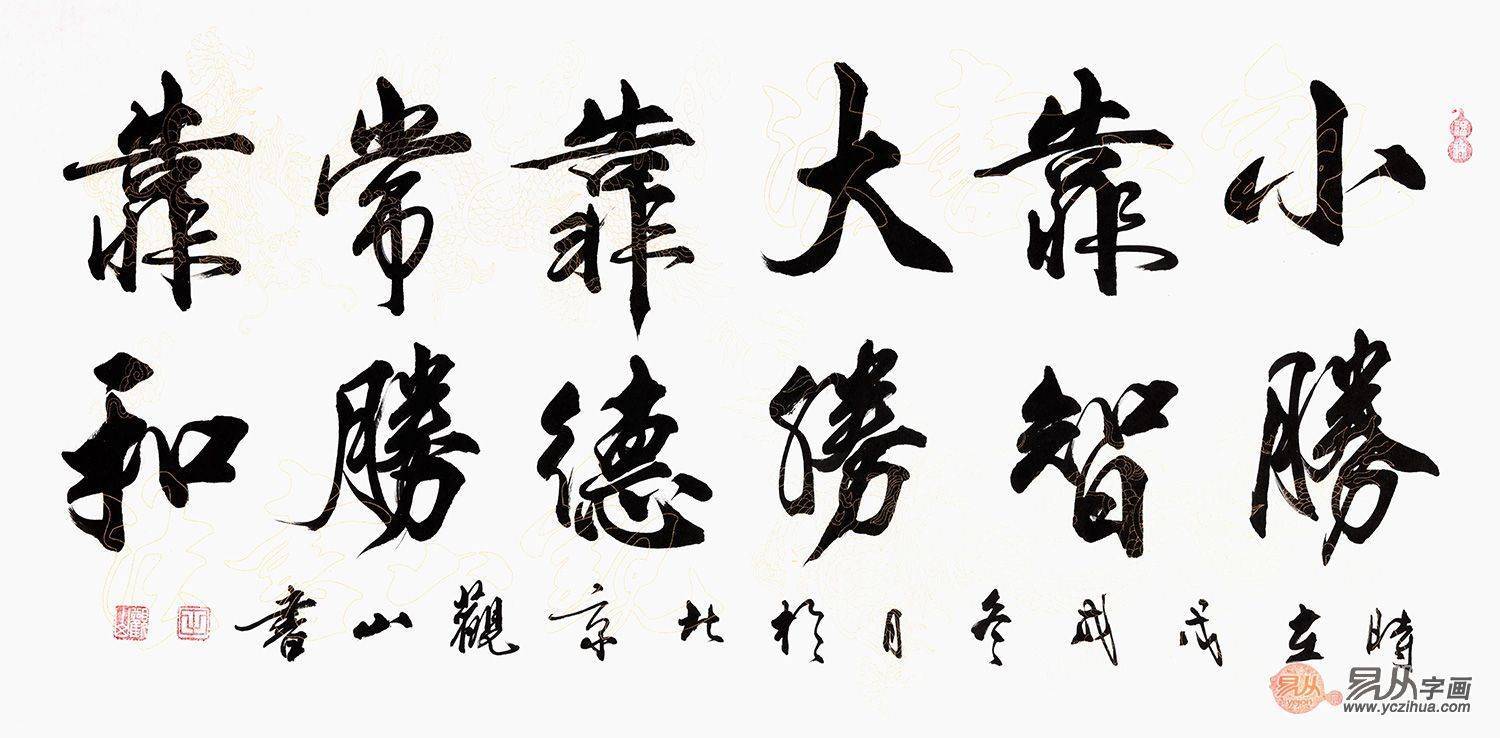 小勝
靠智
大勝
靠德
常勝
靠和
時在戊戌冬月於北京觀山書
易从
易从字画
www.yczihua.com